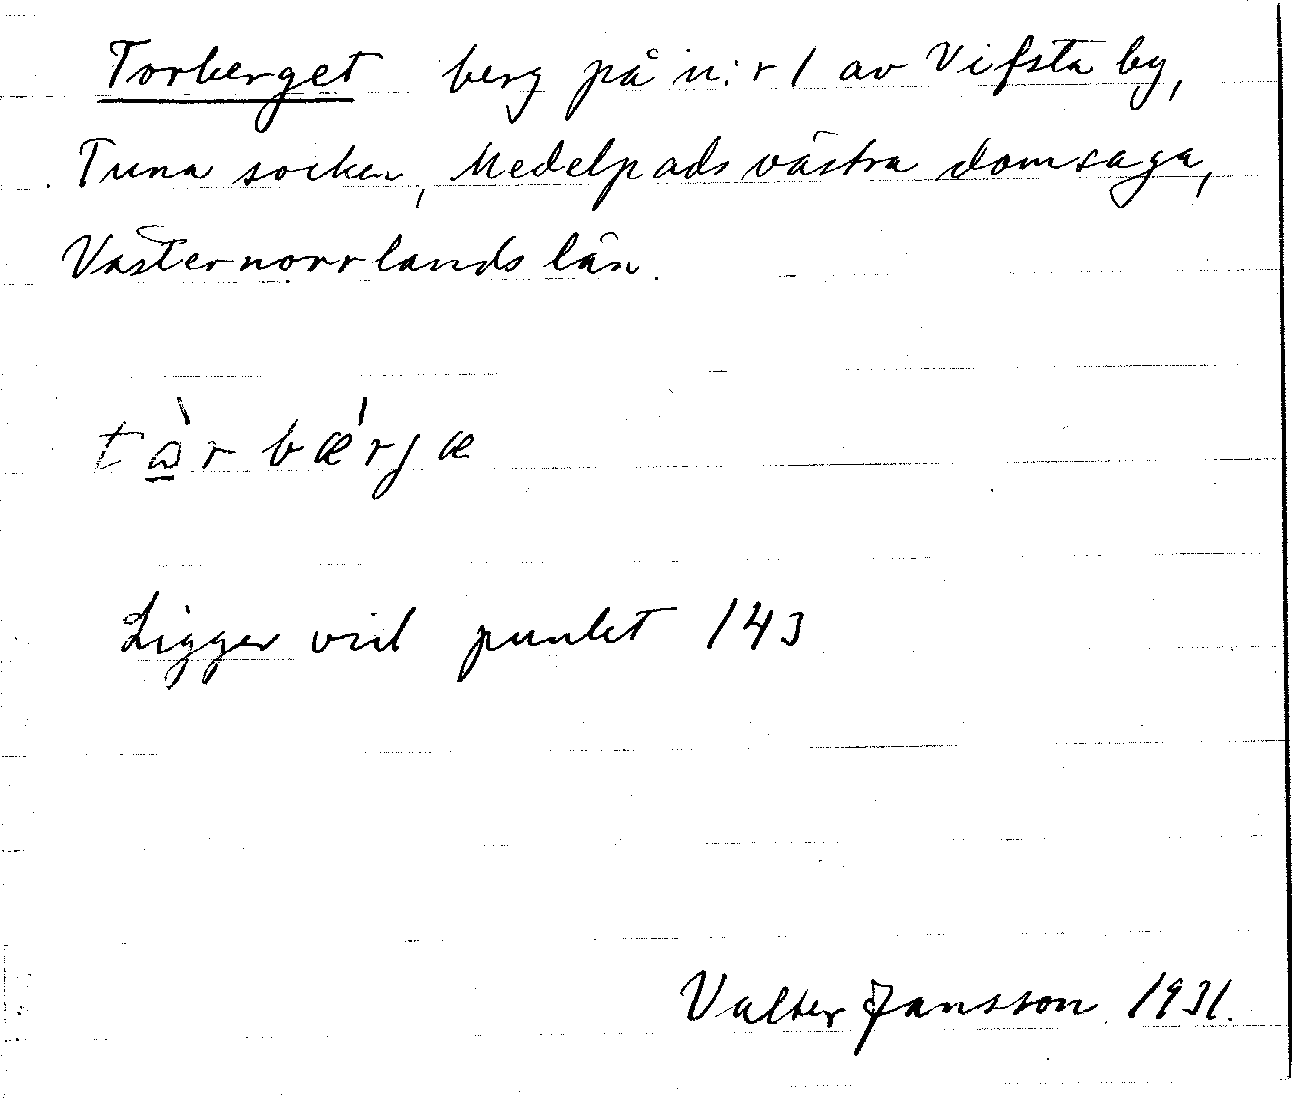 Torberget berg på n:r 1 av Vifsta by,
Tuna socken, Medelpads västra domsaga,
Västernorrlands län.
tà̱rbǽrjæ
Ligger vid punkt 143
Valter Jansson 1931.